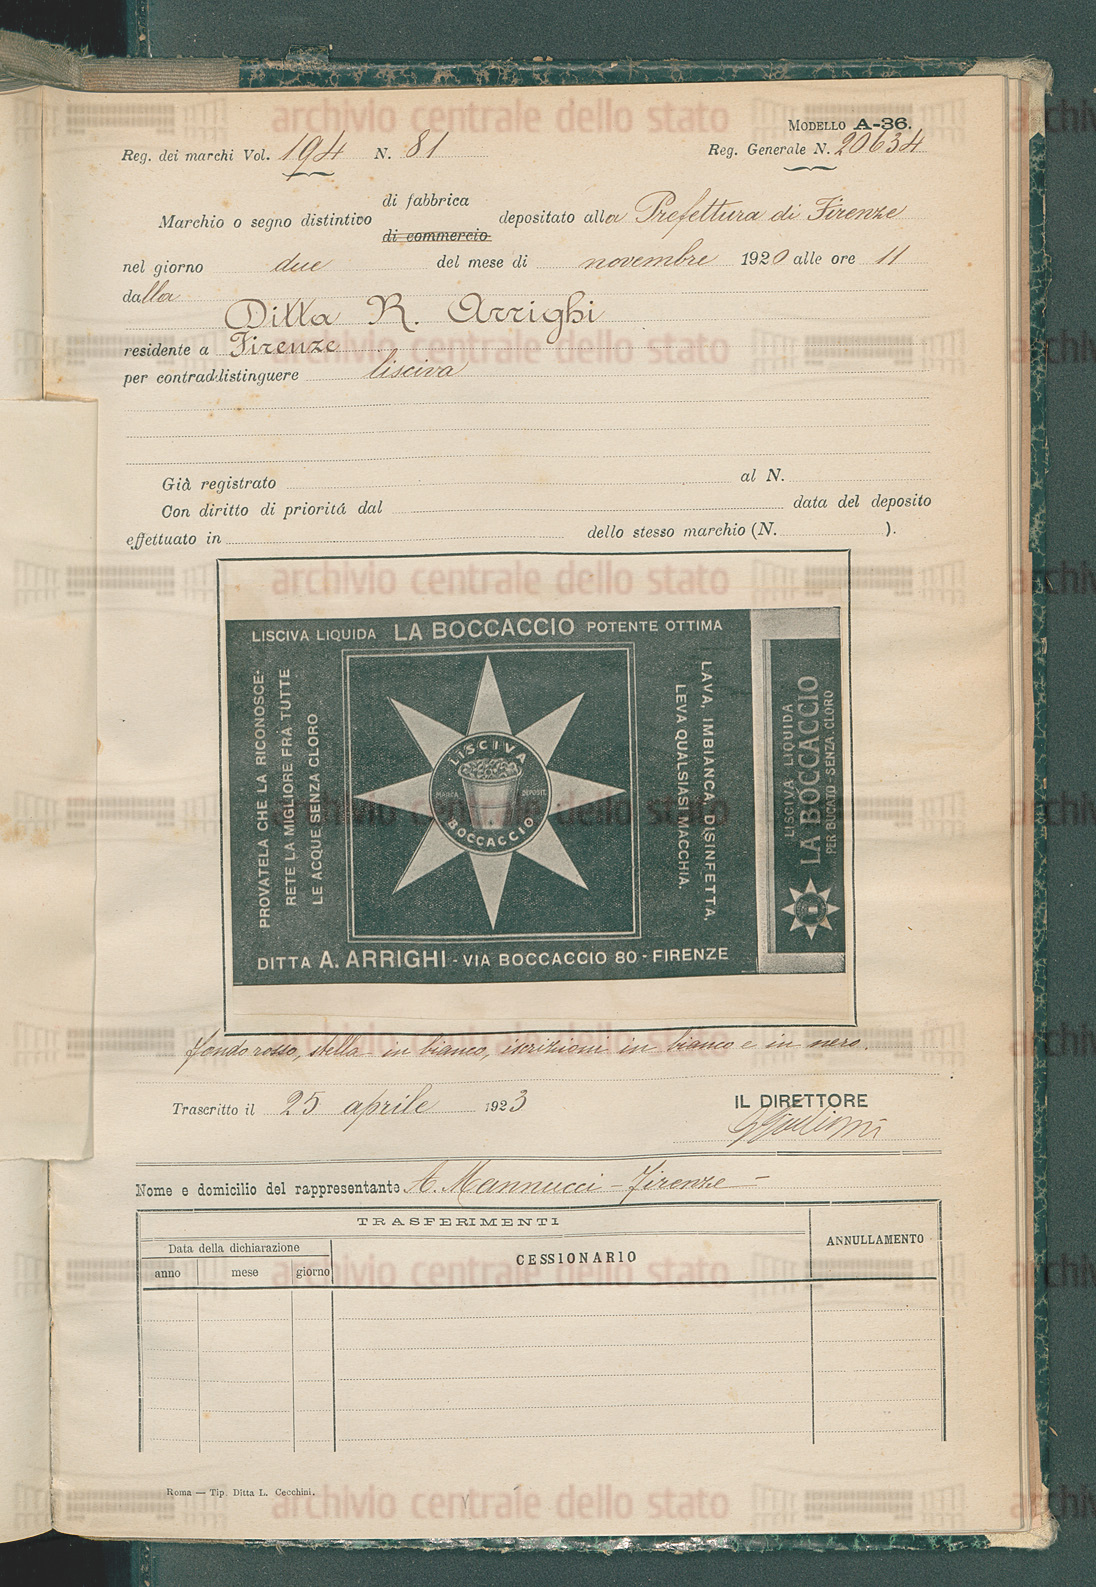 MODELLO A-36.
Reg. dei marchi Vol. 194 N. 81
Reg. Generale N. 20634
Marchio o segno distintivo di fabbrica di commercio depositato alla Prefettura di Firenze
nel giorno due del mese di novembre 1920 alle ore 11
dalla
Ditta R. Arrighi
residente a Firenze
per contraddistinguere lisciva
Già registrato al N.
Con diritto di prioritá dal data del deposito
effettuato in dello stesso marchio (N. ).
LISCIVA LIQUIDA LA BOCCACCIO POTENTE OTTIMA
PROVATELA CHE LA RICONOSCE-
RETE LA MIGLIORE FRA TUTTE
LE ACQUE SENZA CLORO
LISCIVA
MARCA DEPOSIT.
BOCCACCIO
LAVA, IMBIANCA, DISINFETTA,
LEVA QUALSIASI MACCHIA.
DITTA A. ARRIGHI - VIA BOCCACCIO 80 - FIRENZE
LISCIVA LIQUIDA
LA BOCCACCIO
PER BUCATO - SENZA CLORO
fondo rosso, stella in bianco, iscrizioni in bianco e in nero.
Trascritto il 25 aprile 1923
IL DIRETTORE
Nome e domicilio del rappresentante A. Mannucci - Firenze -
TRASFERIMENTI
ANNULLAMENTO
Data della dichiarazione
CESSIONARIO
anno mese giorno
Roma — Tip. Ditta L. Cecchini.
archivio centrale dello stato